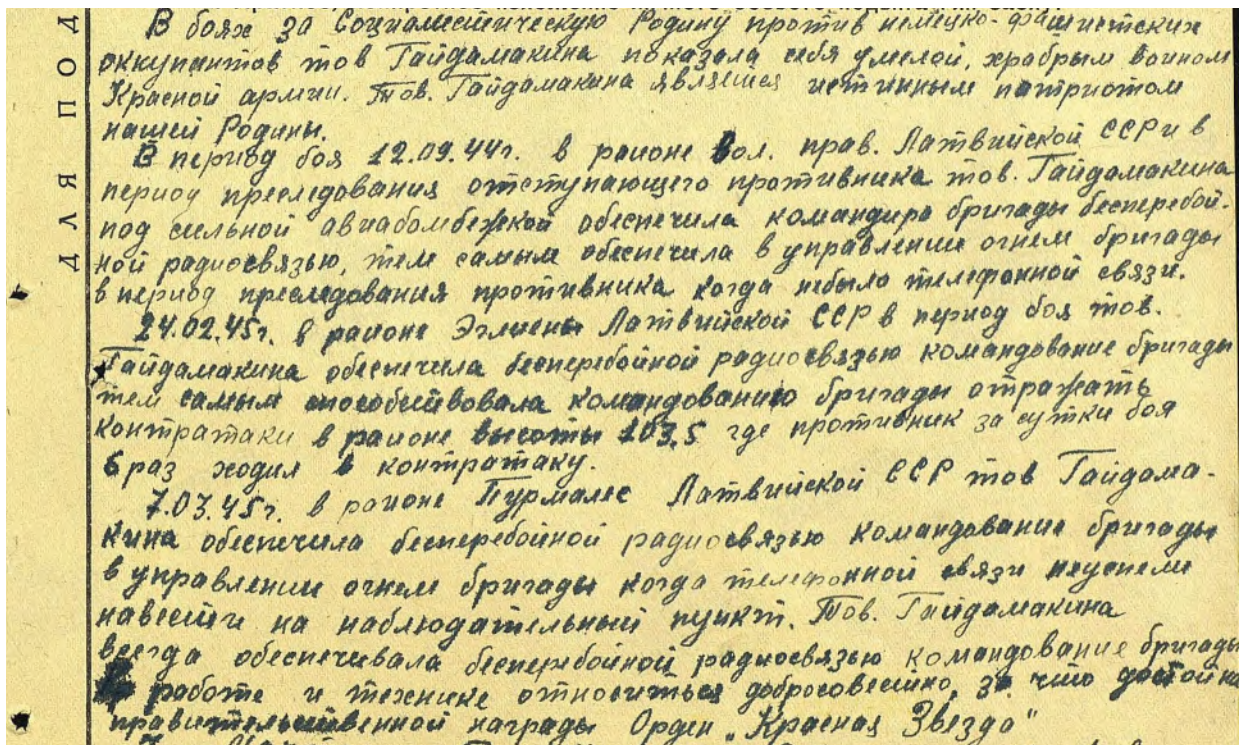 В боях за Социалистическую Родину против немецко-фашистских
оккупантов тов Гайдамакина показала себя умелой, храбрым воином
Красной армии. Тов. Гайдамакина является истинным патриотом
нашей Родины.
В период боя 12.09.44г. в районе вол. прав. Латвийской ССР и в
период преследования отступающего противника тов. Гайдамакина
под сильной авиабомбежкой обеспечила командира бригады бесперебой-
ной радиосвязью, тем самым обеспечила в управлении огнем бригады
в период преследования противника когда небыло телефонной связи.
24.02.45г. в районе Эглиены Латвийской ССР в период боя тов.
Гайдамакина обеспечила бесперебойной радиосвязью командование бригады
тем самым способствовала командованию бригады отражать
контратаки в районе высоты 103,5 где противник за сутки боя
6 раз ходил в контратаку.
7.03.45г. в районе Пурмалес Латвийской ССР тов Гайдама-
кина обеспечила бесперебойной радиосвязью командование бригады
в управлении огнем бригады когда телефонной связи неуспели
навести на наблюдательный пункт. Тов. Гайдамакина
всегда обеспечивала бесперебойной радиосвязью командование бригады
работе и технике относиться добросовестно, за что достойна
правительственной награды Орден „Красная Звезда"
ДЛЯ ПОД